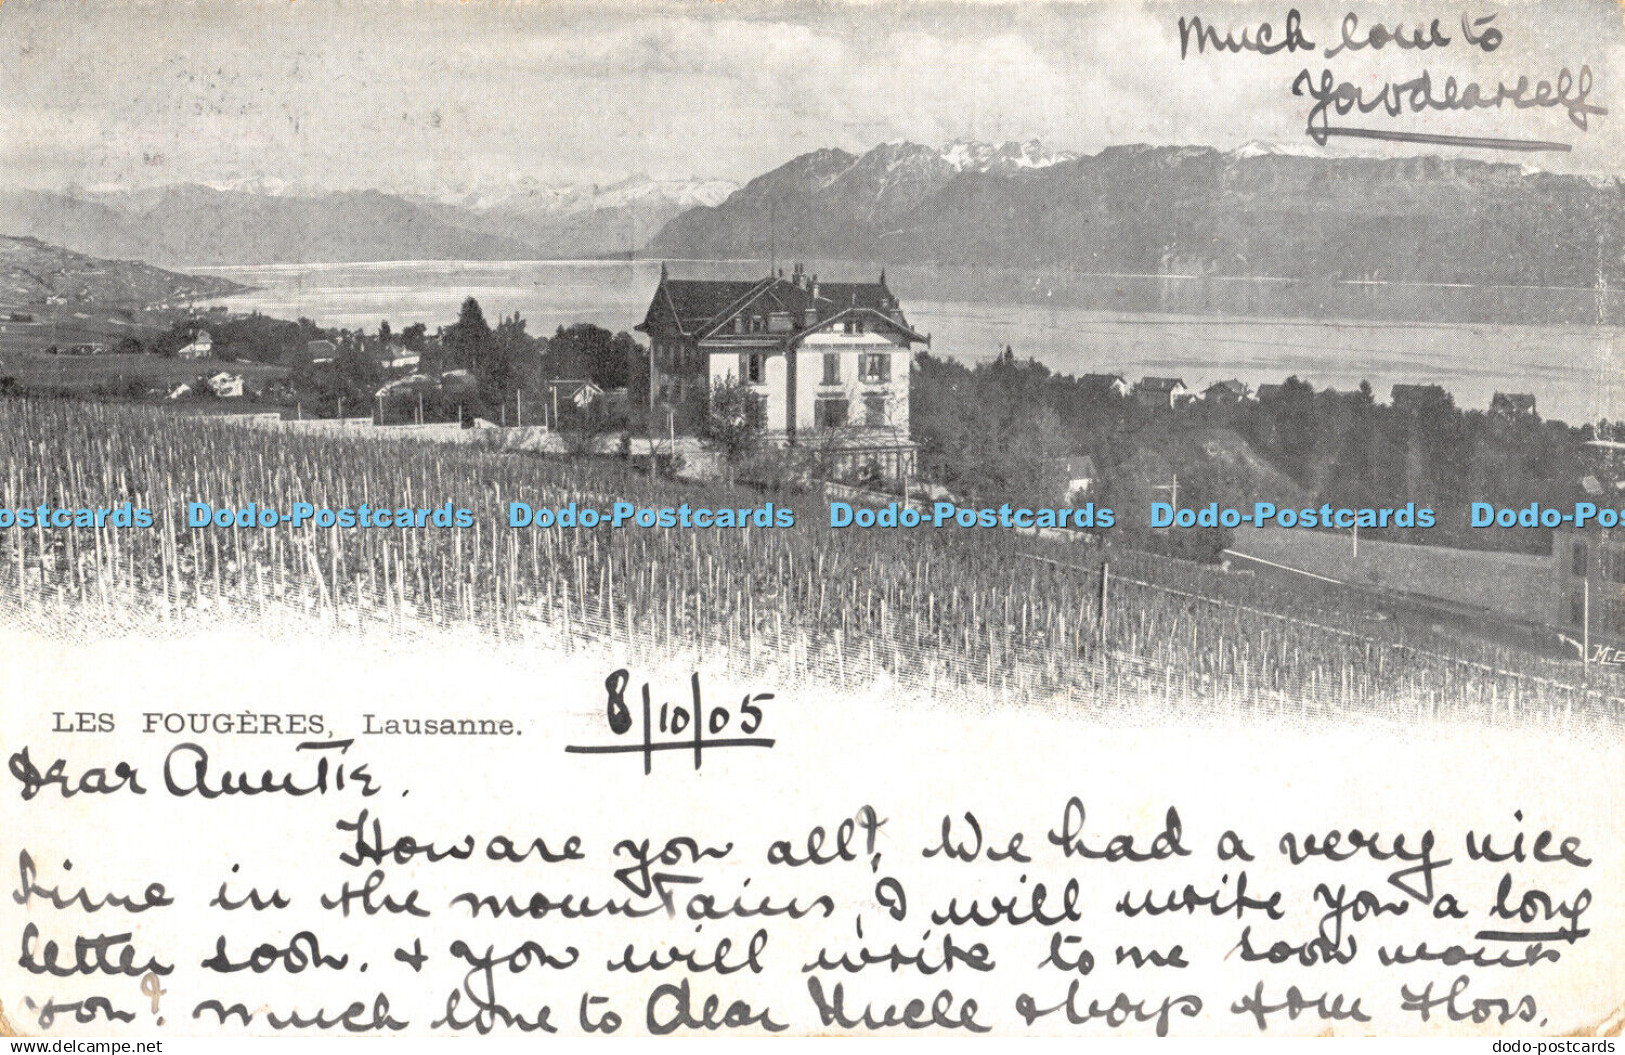 Much love to
Yourdearself
Dodo-Postcards Dodo-Postcards Dodo-Postcards Dodo-Postcards Dodo-Postcards
LES FOUGÈRES, Lausanne.
8/10/05
Dear Auntie.
How are you all?, We had a very nice
time in the mountains, I will write you a long
letter soon. & you will write to me soon wont
you? Much love to Dear Uncle & boys from Floss.
dodo-postcards.com